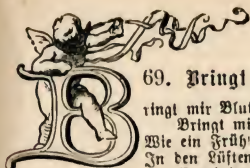 69. Bringt
Bringt mir Blut
Bringt mi
Wie ein Früh
In den Lüften